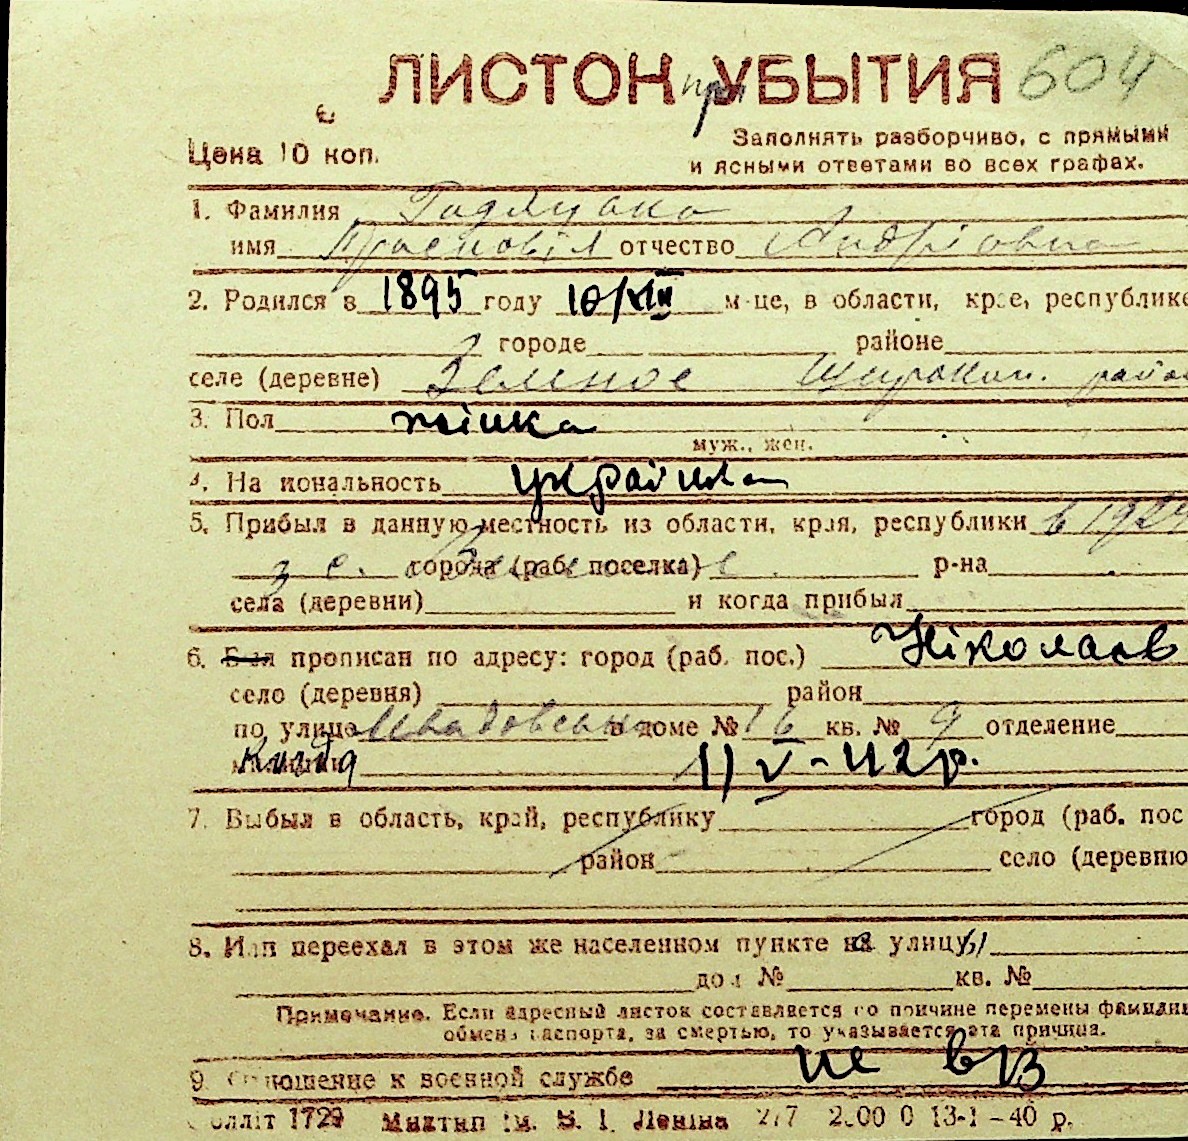 ЛИСТОК при УБЫТИЯ 604
Цена 10 коп.
Заполнять разборчиво, с прямыми
и ясными ответами во всех графах.
1. Фамилия
имя отчество Андріовна
2. Родился в 1895 году 10/XII м-це, в области, крае, республике
городе районе
селе (деревне) Зеленое Широкин. район
3. Пол жінка
муж., жен.
4. Национальность українка
5. Прибыл в данную местность из области, края, республики в 1924
з с. города (раб. поселка) р-на
села (деревни) и когда прибыл
6. Был прописан по адресу: город (раб. пос.) Ніколаєв
село (деревня) район
по улице в доме № 16 кв. № 9 отделение
милиции 11/V-42 р.
7. Выбыл в область, край, республику город (раб. пос
район село (деревню
8. Или переехал в этом же населенном пункте на улицу
дом № кв. №
Примечание. Если адресный листок составляется по причине перемены фамилии
обмена паспорта, за смертью, то указывается эта причина.
9. Отношение к военной службе не в/в
оллiт 1729 Миктип iм. В. I. Ленiна 277 2.00 0 13-1-40 р.